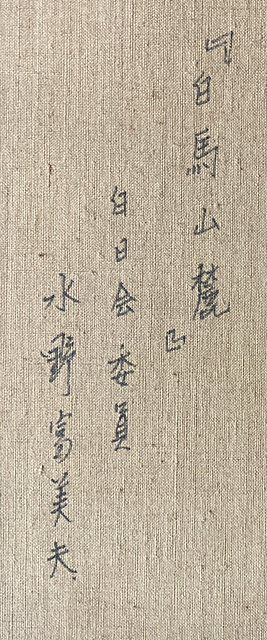 『白馬山麓』
白日会委員
水野富美夫